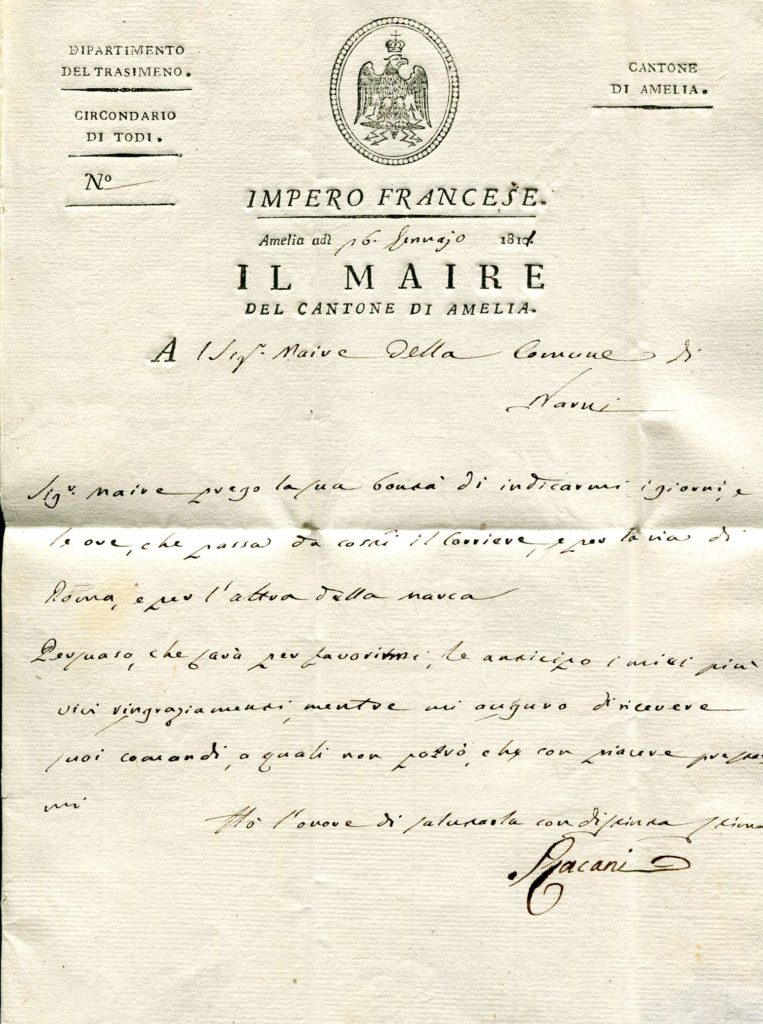 DIPARTIMENTO
DEL TRASIMENO.
CIRCONDARIO
DI TODI.
Nº
CANTONE
DI AMELIA.
IMPERO FRANCESE.
Amelia adì 16. Gennajo 181
IL MAIRE
DEL CANTONE DI AMELIA.
A l Sigr. Maire della Comune di
Narni
Sigr. Maire prego la sua bontà di indicarmi i giorni, e
le ore, che passa da costì il Corriere, e per la via di
Roma, e per l'altra della Marca
Persuaso, che sarà per favorirmi, le anticipo i miei più
vivi ringraziamenti, mentre mi auguro di ricevere
suoi comandi, a quali non potrò, che con piacere
mi
Hò l'onore di salutarla con distinta stima